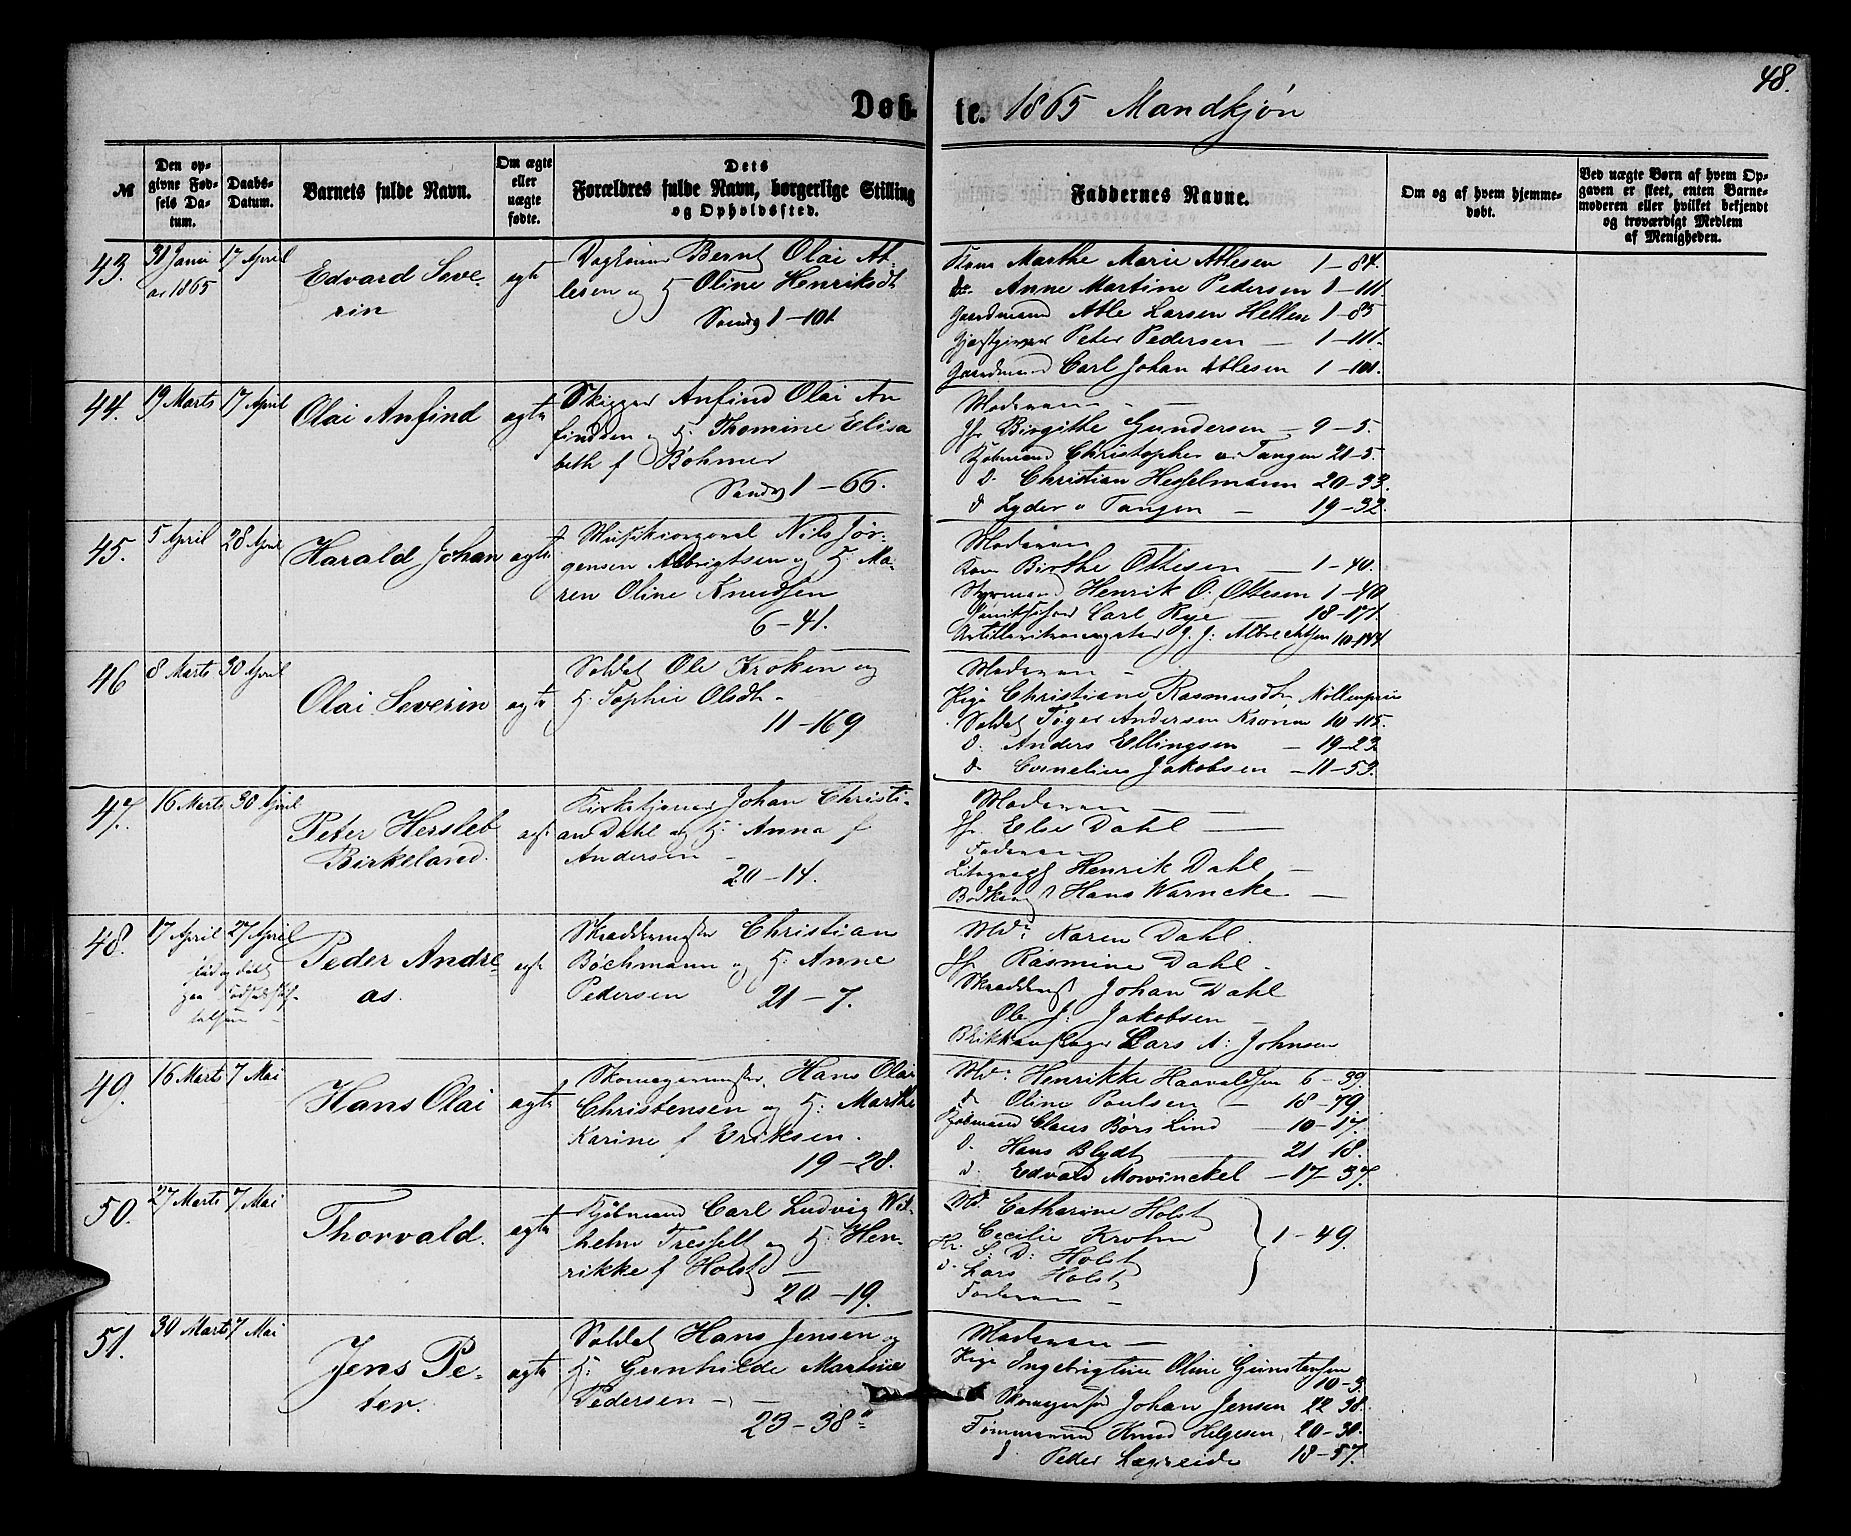 48.
Døbte. 1865 Mandkjøn
№
Den opgivne Fødsels Datum.
Daabs-Datum.
Barnets fulde Navn.
Om ægte eller uægte fødte.
Dets Forældres fulde Navn, borgerlige Stilling og Opholdssted.
Faddernes Navne.
Om og af hvem hjemmedøbt.
Ved uægte Børn af hvem Opgaven er skeet, enten Barnemoderen eller hvilket bekjendt og troværdigt Medlem af Menigheden.
43. 31 Janu 17 April
ar 1865
Edvard Seve-
rin
ægt
Bernt Olai Ab-
lesen og H Oline Henriksdt
Sandv 1-101
Kone Marthe Marie Ablesen 1-84.
do. Anne Martine Pedersen 1-111.
Gaardmand Able Larsen Hellen 1-85
Gjæstgiver Peter Pedersen — 1-111.
Gaardmand Carl Johan Ablesen 1-101.
44. 19 Marts 17 April
Olai Anfind
ægte
Skipper Anfind Olai An
findsen og H. Thomine Elisa
beth f Bøhmer
Sandv 1-66.
Moderen —
Jfr Birgithe Gundersen — 9-5.
Kjøbmand Christopher v. Tangen 21-5
d. Christian Hesselmann 20-33.
d Lyder v Tangen — 19-32.
45. 5 April 28 April
Harald Johan
ægte
Nils Jør-
gensen Albrigtsen og H. Ma-
ren Oline Knudsen
6-41.
Moderen —
Kone Birthe Ottesen — 1-40.
Styrmand Henrik O. Ottesen 1-40
Carl Rye — 18-171.
J. J. Albrechtsen 10-144
46 8 Marts 30 April
Olai Severin
ægte
Soldat Ole Kroken og
H. Sophie Olsdt.
11-169
Moderen —
Pige Christiane Rasmusdtr, Møllenpriis
Soldat Tøger Andersen Kronen 10-115.
d. Anders Ellingsen — 19-23
d. Cornelius Jakobsen — 11-53.
47. 16 Marts 30 April
Peter Hersleb
Birkeland.
ægt
Kirketjener Johan Christi-
an Dahl og H. Anna f
Andersen —
20-14.
Moderen —
Jfr. Else Dahl —
Faderen
Litograf Henrik Dahl —
Hans Warncke —
48. 17 April 27 April
Peder Andre-
as.
ægt
Skreddermester Christian
Böchmann og H. Anne
Pedersen 21-7.
Md: Karen Dahl.
Jfr. Rasmine Dahl.
Skreddermst Johan Dahl
Ole J. Jakobsen —
Blikkenslager Lars A. Johnsen
49. 16 Marts 7 Mai
Hans Olai
ægte
Skomagermester, Hans Olai
Christensen og H. Marthe
Karine f Eriksen.
19-28.
Md: Henrikke Haavaldsen 6-39.
d. Oline Poulsen — 18-79.
Kjøbmand Claus Børs Lind — 10-17.
d. Hans Blydt — 21-18.
d. Edvald Mowinckel — 17-37.
50. 27 Marts 7 Mai
Thorvald.
ægte
Kjøbmand Carl Ludvig Wil-
helm Tresselt og H. Hen-
rikke f Holst —
20-19.
Md. Catharine Holst
Cecilie Krohn 1-49.
Hr: S: D: Holst
d. Lars Holst
Faderen —
51. 30 Marts 7 Mai
Jens Pe-
ter.
ægte
Soldat Hans Jensen og
H. Gunhilde Martine
Pedersen —
23-38a
Moderen —
Pige Ingebrigtine Oline Gunstensen
10-3.
Johan Jensen 22-38.
Tømmermand Knud Helgesen, 20-30.
d. Peder Lægreide 18-57.